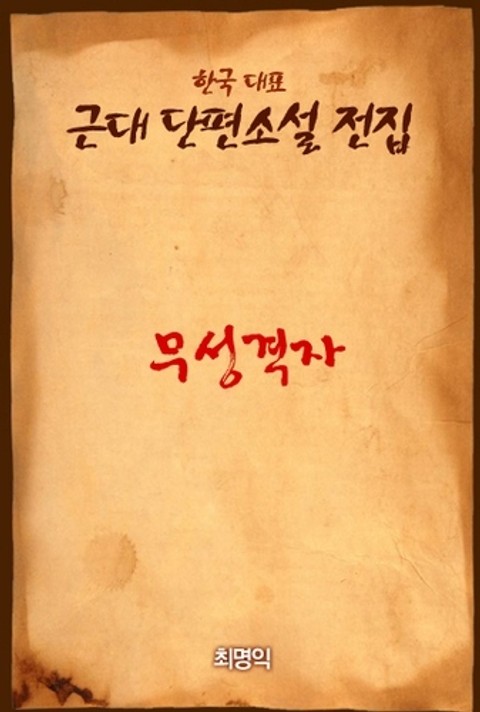 한국 대표
근대 단편소설 전집
무성격자
최명익